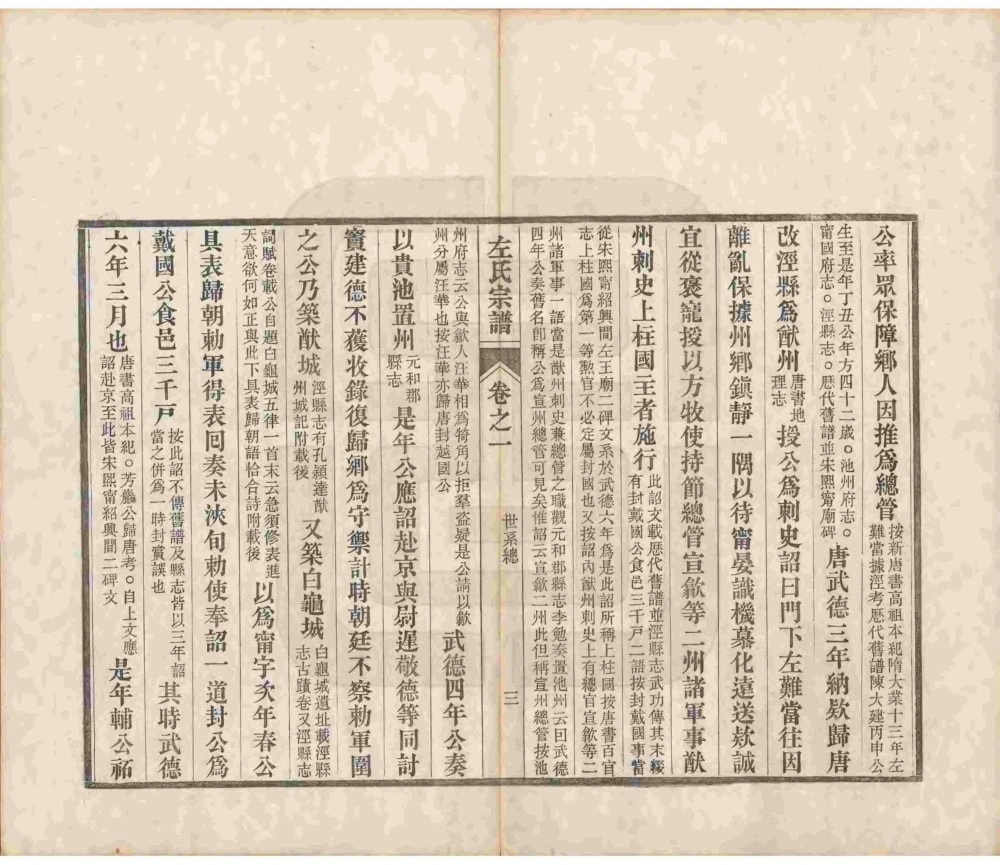 公率眾保障鄉人因推爲總管按新唐書高祖本紀隋大業十三年左難當據涇考歴代舊譜陳大建丙申公
生至是年丁丑公年方四十二歲。池州府志。甯國府志。涇縣志。歴代舊譜並宋熙甯廟碑唐武德三年納欵歸唐
改涇縣爲猷州唐書地理志授公爲刺史詔曰門下左難當往因
離亂保據州鄉鎮靜一隅以待甯晏識機慕化遠送欵誠
宜從褒寵授以方牧使持節總管宣歙等二州諸軍事猷
州刺史上柱國王者施行此詔文載歴代舊譜並涇縣志武功傳其末綴有封戴國公食邑三千戸二語按封戴國事當
從宋熙甯紹興間左王廟二碑文系於武德六年爲是此詔所稱上柱國按唐書百官志上柱國爲第一等勲官不必定屬封國也又按詔內猷州刺史上有總官宣歙等二
州諸軍事一語當是猷州刺史兼總管之職觀元和郡縣志李勉奏置池州云曰武德四年公奏舊名卽稱公爲宣州總管可見矣惟詔云宣歙二州此但稱宣州總管按池
左氏宗譜 卷之一 世系總 三
州府志云公與歙人汪華相爲犄角以拒羣盗疑是公請以歙州分屬汪華也按汪華亦歸唐封越國公武德四年公奏
以貴池置州元和郡縣志是年公應詔赴京與尉遲敬德等同討
竇建德不獲收錄復歸鄉爲守禦計時朝廷不察勅軍圍
之公乃築猷城涇縣志有孔穎達猷州城記附載後又築白龜城白龜城遺址載涇縣志古蹟卷又涇縣志
詞賦卷載公自題白龜城五律一首末云急須修表進天意欲何如正與此下具表歸朝語恰合詩附載後以爲甯字次年春公
具表歸朝勅軍得表回奏未浹旬勅使奉詔一道封公爲
戴國公食邑三千戸按此詔不傳舊譜及縣志皆以三年詔當之併爲一時封賞誤也其時武德
六年三月也唐書高祖本紀。芳巖公歸唐考。自上文應詔赴京至此皆宋熙甯紹興間二碑文是年輔公祏